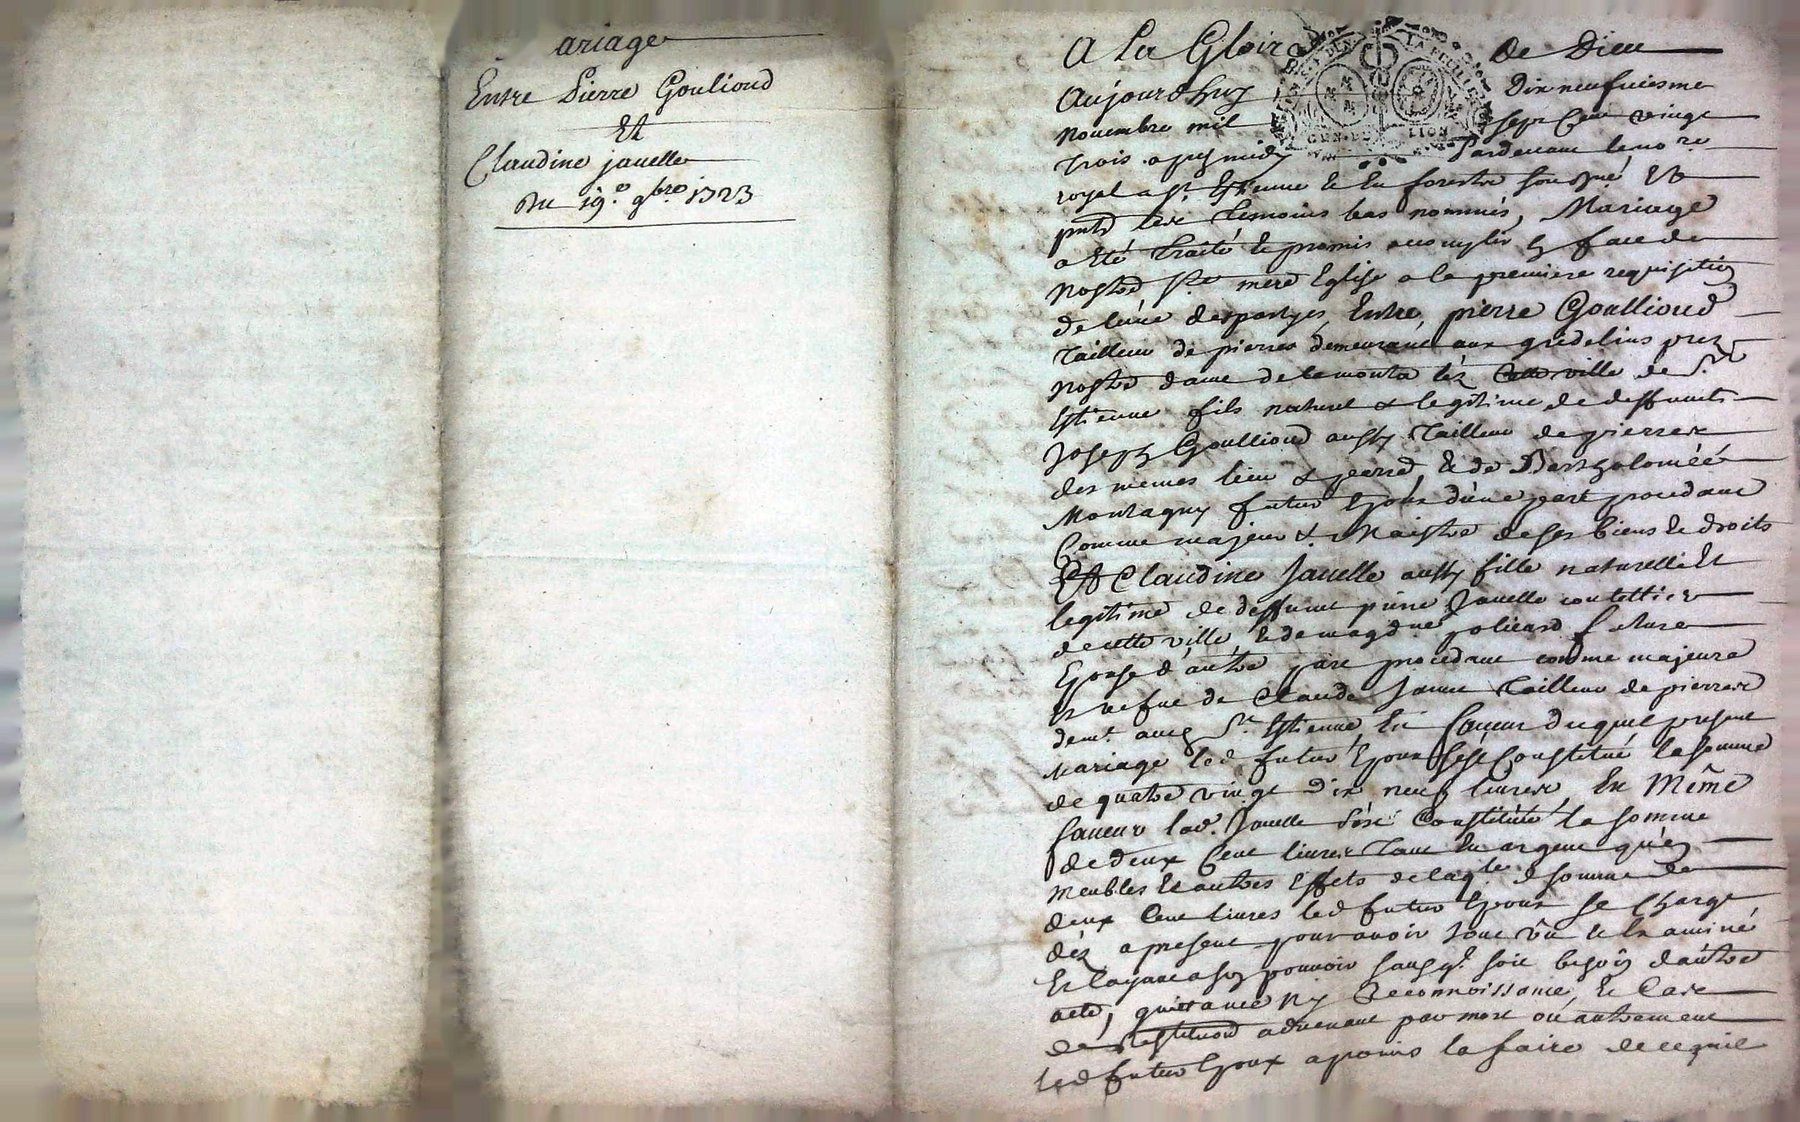 ariage
Entre Pierre Goulioud
Et
Claudine jauelle
Du 19.e 9bre 1723
A La Gloire de Dieu
Aujourdhuy Dix neufuiesme
nouembre mil sept Cent vingt
Trois apres midy Pardeuant le no.re
royal a St. Estienne de en forestz sousigné Et
pnts les temoins bas nommés, Mariage
a Eté traité et promis accomplir En face de
nostre Ste. mere Eglise a la premiere requisition
de lune des partyes, Entre pierre Goullioud
tailleur de pierres demeurant aux gredelins prez
nostre dame de lamonta léz Cette ville de St.
Estienne fils naturel & legitime de deffunts
Joseph Goullioud aussy tailleur de pierres
des memes lieu & et de Barthelomée
Montagny futur Epoux d'une part procedant
Comme majeur & Maistre de ses biens et droits
Et Claudine Jauelle aussy fille naturelle Et
legitime de deffunt pierre Jauelle coutellier
de cette ville, et de magdne policard future
Epouse d'autre part procedant comme majeure
et vefue de Claude tailleur de pierres
demt. audt St. Estienne, En faueur duquel present
Mariage led futur Epoux s'est Constitué la somme
de quatre vingt Dix neuf liures, En Même
faueur lad. Jauelle s'est Constituée la somme
de deux Cent liures tant En argent qu'en
meubles Et autres Effets de laqle. somme de
deux Cent liures led futur Epoux se charge
déz a present pour auoir le tout vû et Examiné
Et layant a son pouvoir sans ql. soit besoin d'autre
acte, quittance ny Reconnoissance, Et Cas
de Restitution aduenant par mort ou autrement
led futur Epoux a promis la faire de ce qu'il